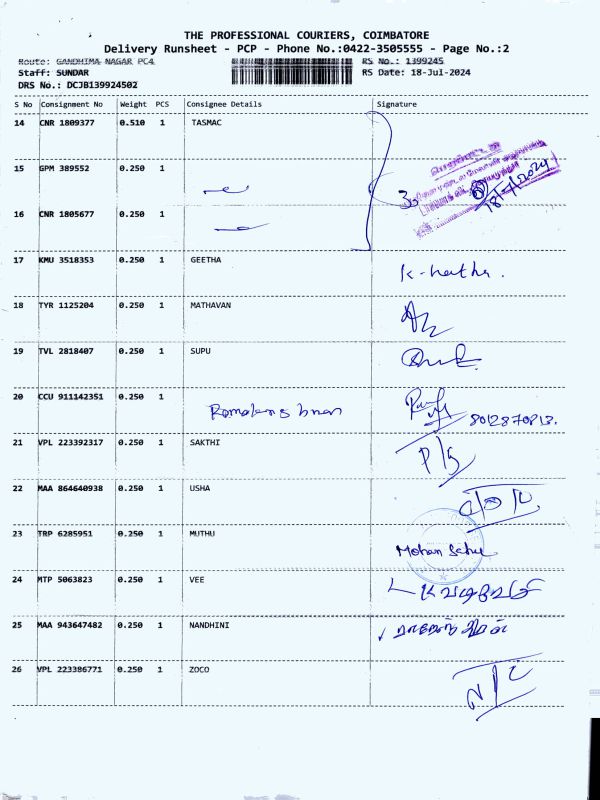 THE PROFESSIONAL COURIERS, COIMBATORE
Delivery Runsheet - PCP - Phone No.:0422-3505555 - Page No.:2
Route: GANDHIMA NAGAR PC4 RS No.: 1399245
Staff: SUNDAR RS Date: 18-Jul-2024
DRS No.: DCJB139924502
S No Consignment No Weight PCS Consignee Details Signature
14 CNR 1809377 0.510 1 TASMAC
15 GPM 389552 0.250 1
16 CNR 1805677 0.250 1
17 KMU 3518353 0.250 1 GEETHA
18 TYR 1125204 0.250 1 MATHAVAN
19 TVL 2818407 0.250 1 SUPU
20 CCU 911142351 0.250 1 8012870813.
21 VPL 223392317 0.250 1 SAKTHI
22 MAA 864640938 0.250 1 USHA
23 TRP 6285951 0.250 1 MUTHU Mohan
24 MTP 5063823 0.250 1 VEE
25 MAA 943647482 0.250 1 NANDHINI
26 VPL 223386771 0.250 1 ZOCO